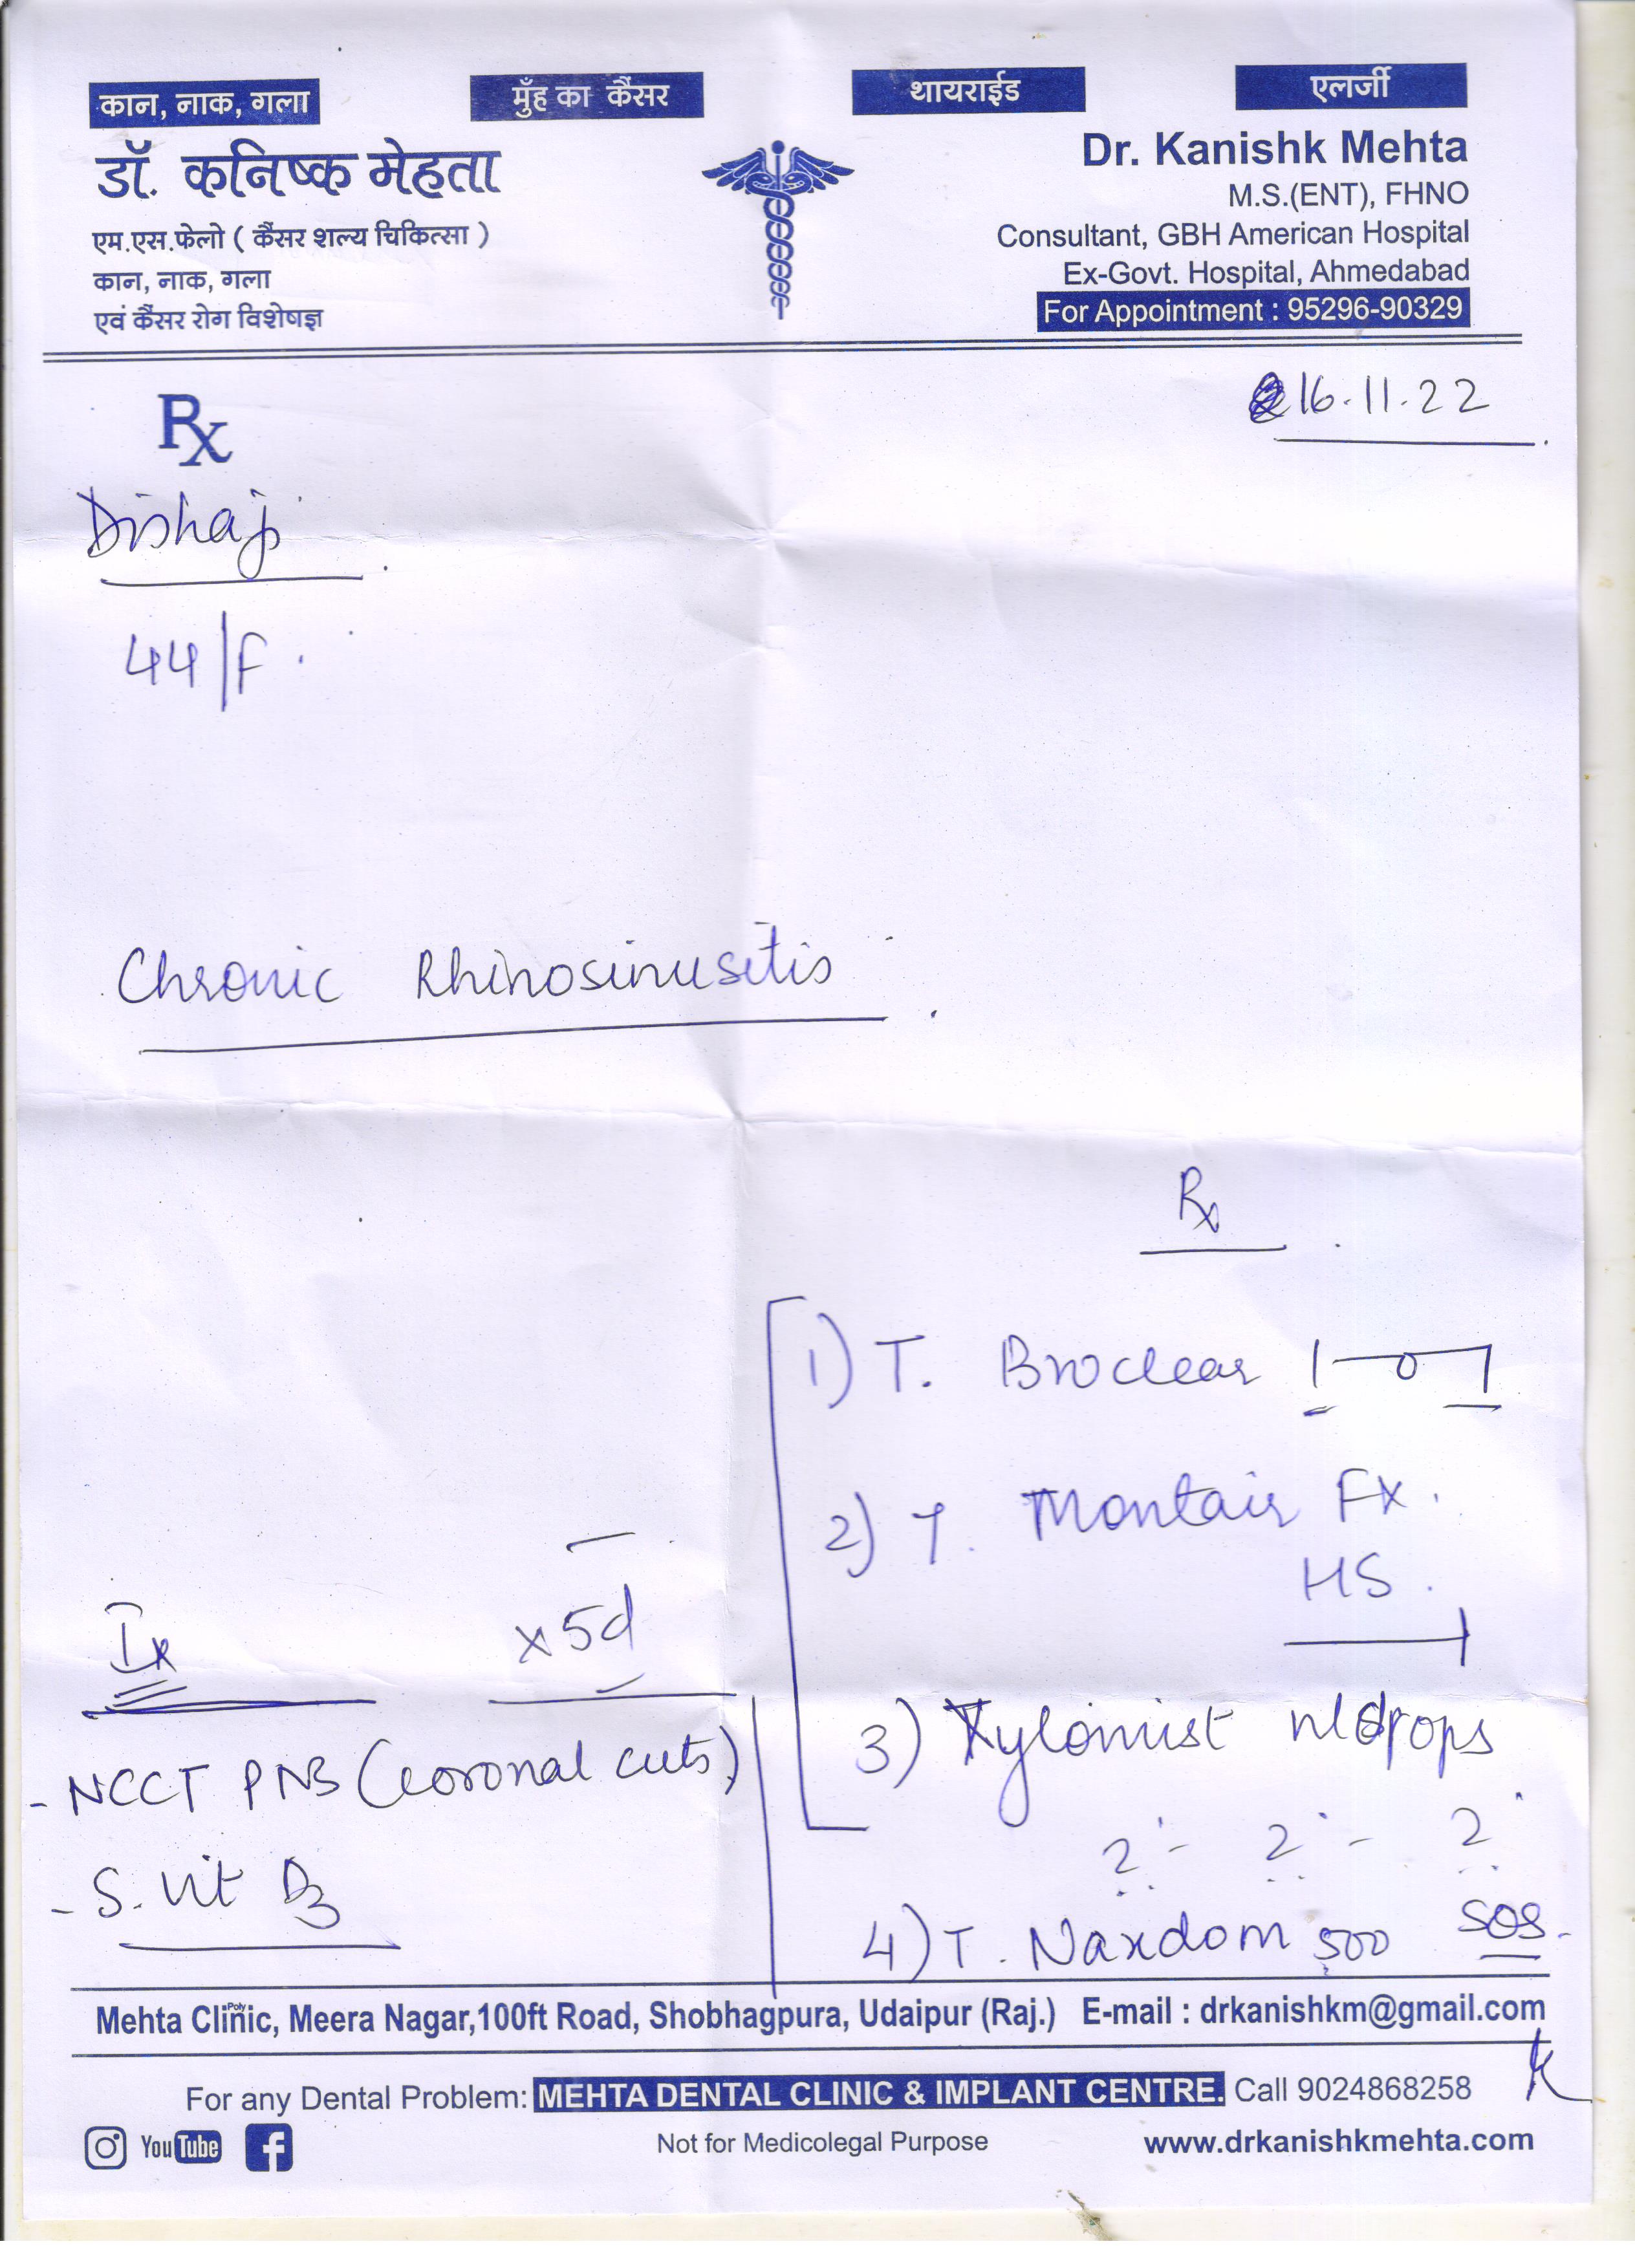 कान, नाक, गला
मुँह का कैंसर
थायराईड
एलर्जी
डॉ. कनिष्क मेहता
एम.एस.फेलो ( कैंसर शल्य चिकित्सा )
कान, नाक, गला
एवं कैंसर रोग विशेषज्ञ
Dr. Kanishk Mehta
M.S.(ENT), FHNO
Consultant, GBH American Hospital
Ex-Govt. Hospital, Ahmedabad
For Appointment : 95296-90329
Rx
16.11.22
Dishaji
44/F.
Chronic Rhinosinusitis
Rx
1) T. Broclear 1-0-1
2) T. Montair FX.
HS.
3) Xylomist nldrops
2 - 2 - 2
4) T. Naxdom 500 SOS.
x5d
Ix
- NCCT PNS (coronal cuts)
- S. Vit D3
Mehta Clinic, Meera Nagar,100ft Road, Shobhagpura, Udaipur (Raj.) E-mail : drkanishkm@gmail.com
Poly
For any Dental Problem: MEHTA DENTAL CLINIC & IMPLANT CENTRE. Call 9024868258
YouTube
Not for Medicolegal Purpose
www.drkanishkmehta.com